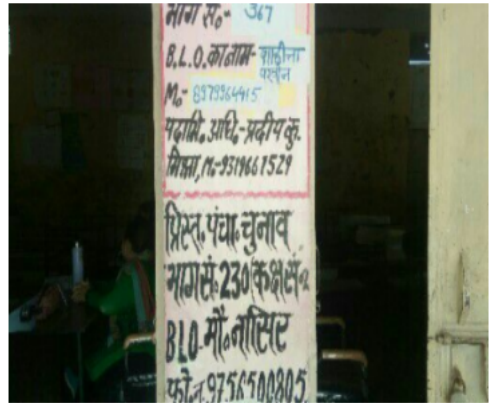 भाग सं०- 367
B.L.O. का नाम- शाहीना
परवीन
M०- 8979964415
पदाभि. अधि.- प्रदीप कु.
मिश्रा, M.-9319661529
त्रिस्त. पंचा. चुनाव
भाग सं. 230 कक्ष सं.
BLO- मौ. नासिर
फो.न. 9756500805